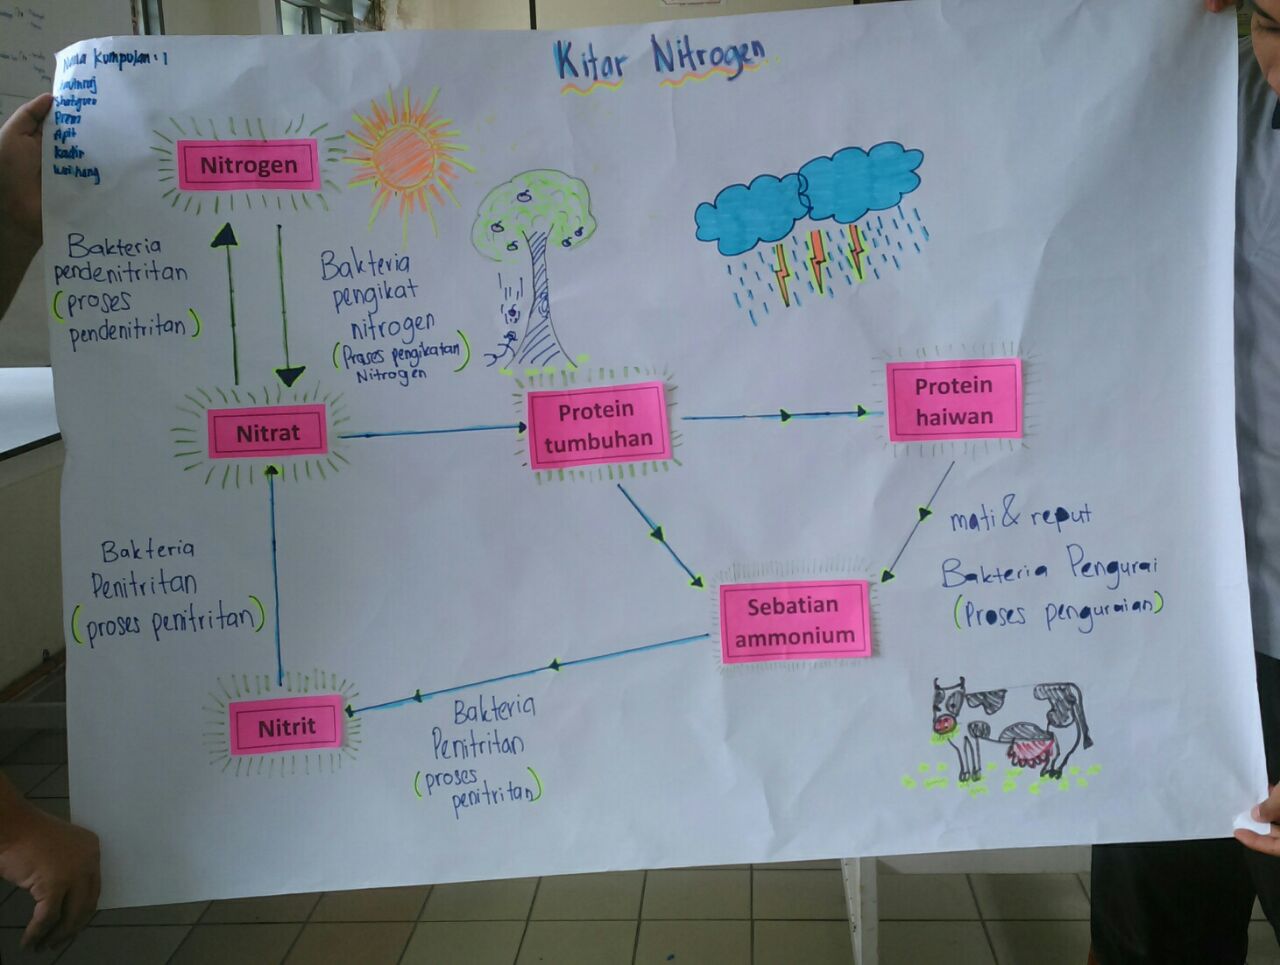 Kitar Nitrogen
Nama Kumpulan : 1
Prem
Apit
Kadir
Wei hang
Nitrogen
Bakteria
pendenitritan
(proses
pendenitritan)
Bakteria
pengikat
nitrogen
(Proses pengikatan)
Nitrogen
Nitrat
Protein
tumbuhan
Protein
haiwan
mati & reput
Bakteria Pengurai
(Proses penguraian)
Bakteria
Penitritan
(proses penitritan)
Sebatian
ammonium
Nitrit
Bakteria
Penitritan
(proses
penitritan)